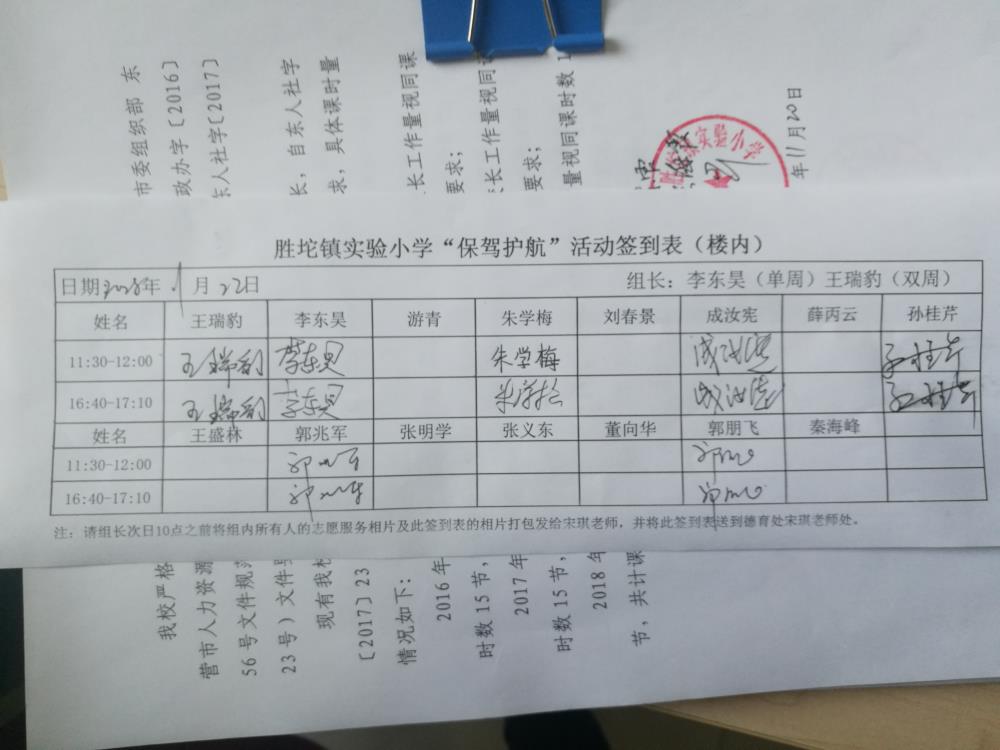 市委组织部 东
政办字〔2016〕
东人社字〔2017〕
长，自东人社字
求，具体课时量
长工作量视同课
要求；
长工作量视同课
要求；
量视同课时数1
实验小学
年11月20日
胜坨镇实验小学“保驾护航”活动签到表（楼内）
日期2018年 月22日 组长：李东昊（单周）王瑞豹（双周）
姓名 王瑞豹 李东昊 游青 朱学梅 刘春景 成汝宪 薛丙云 孙桂芹
11:30-12:00 王瑞豹 李东昊 朱学梅 成汝宪 孙桂芹
16:40-17:10 王瑞豹 李东昊 朱学梅 成汝宪 孙桂芹
姓名 王盛林 郭兆军 张明学 张义东 董向华 郭朋飞 秦海峰
11:30-12:00 郭兆军 郭朋飞
16:40-17:10 郭兆军 郭朋飞
注：请组长次日10点之前将组内所有人的志愿服务相片及此签到表的相片打包发给宋琪老师，并将此签到表送到德育处宋琪老师处。
我校严格
营市人力资源
56号文件规范
23号）文件
现有我校
〔2017〕23
情况如下：
2016年
时数15节，
2017年
时数15节，
2018年
节，共计课